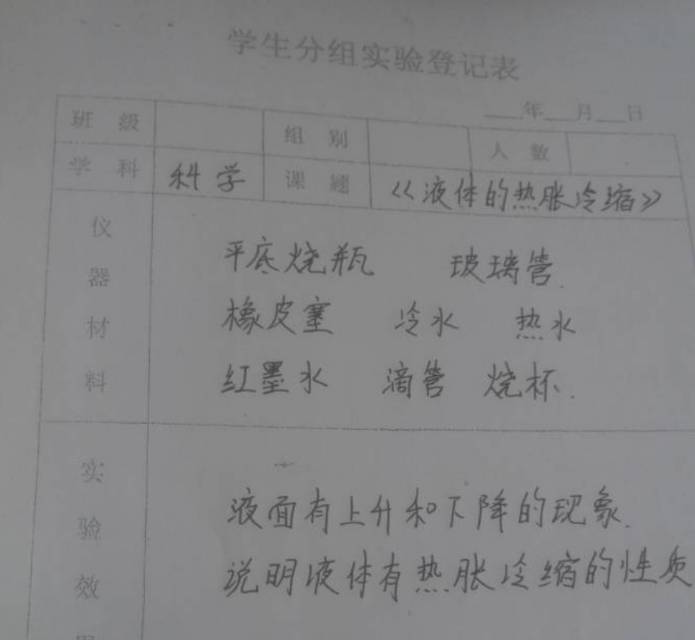 学生分组实验登记表
年 月 日
班级 组别 人数
学科 科学 课题 《液体的热胀冷缩》
仪器材料
平底烧瓶 玻璃管.
橡皮塞 冷水 热水
红墨水 滴管 烧杯.
实验效
液面有上升和下降的现象.
说明液体有热胀冷缩的性质